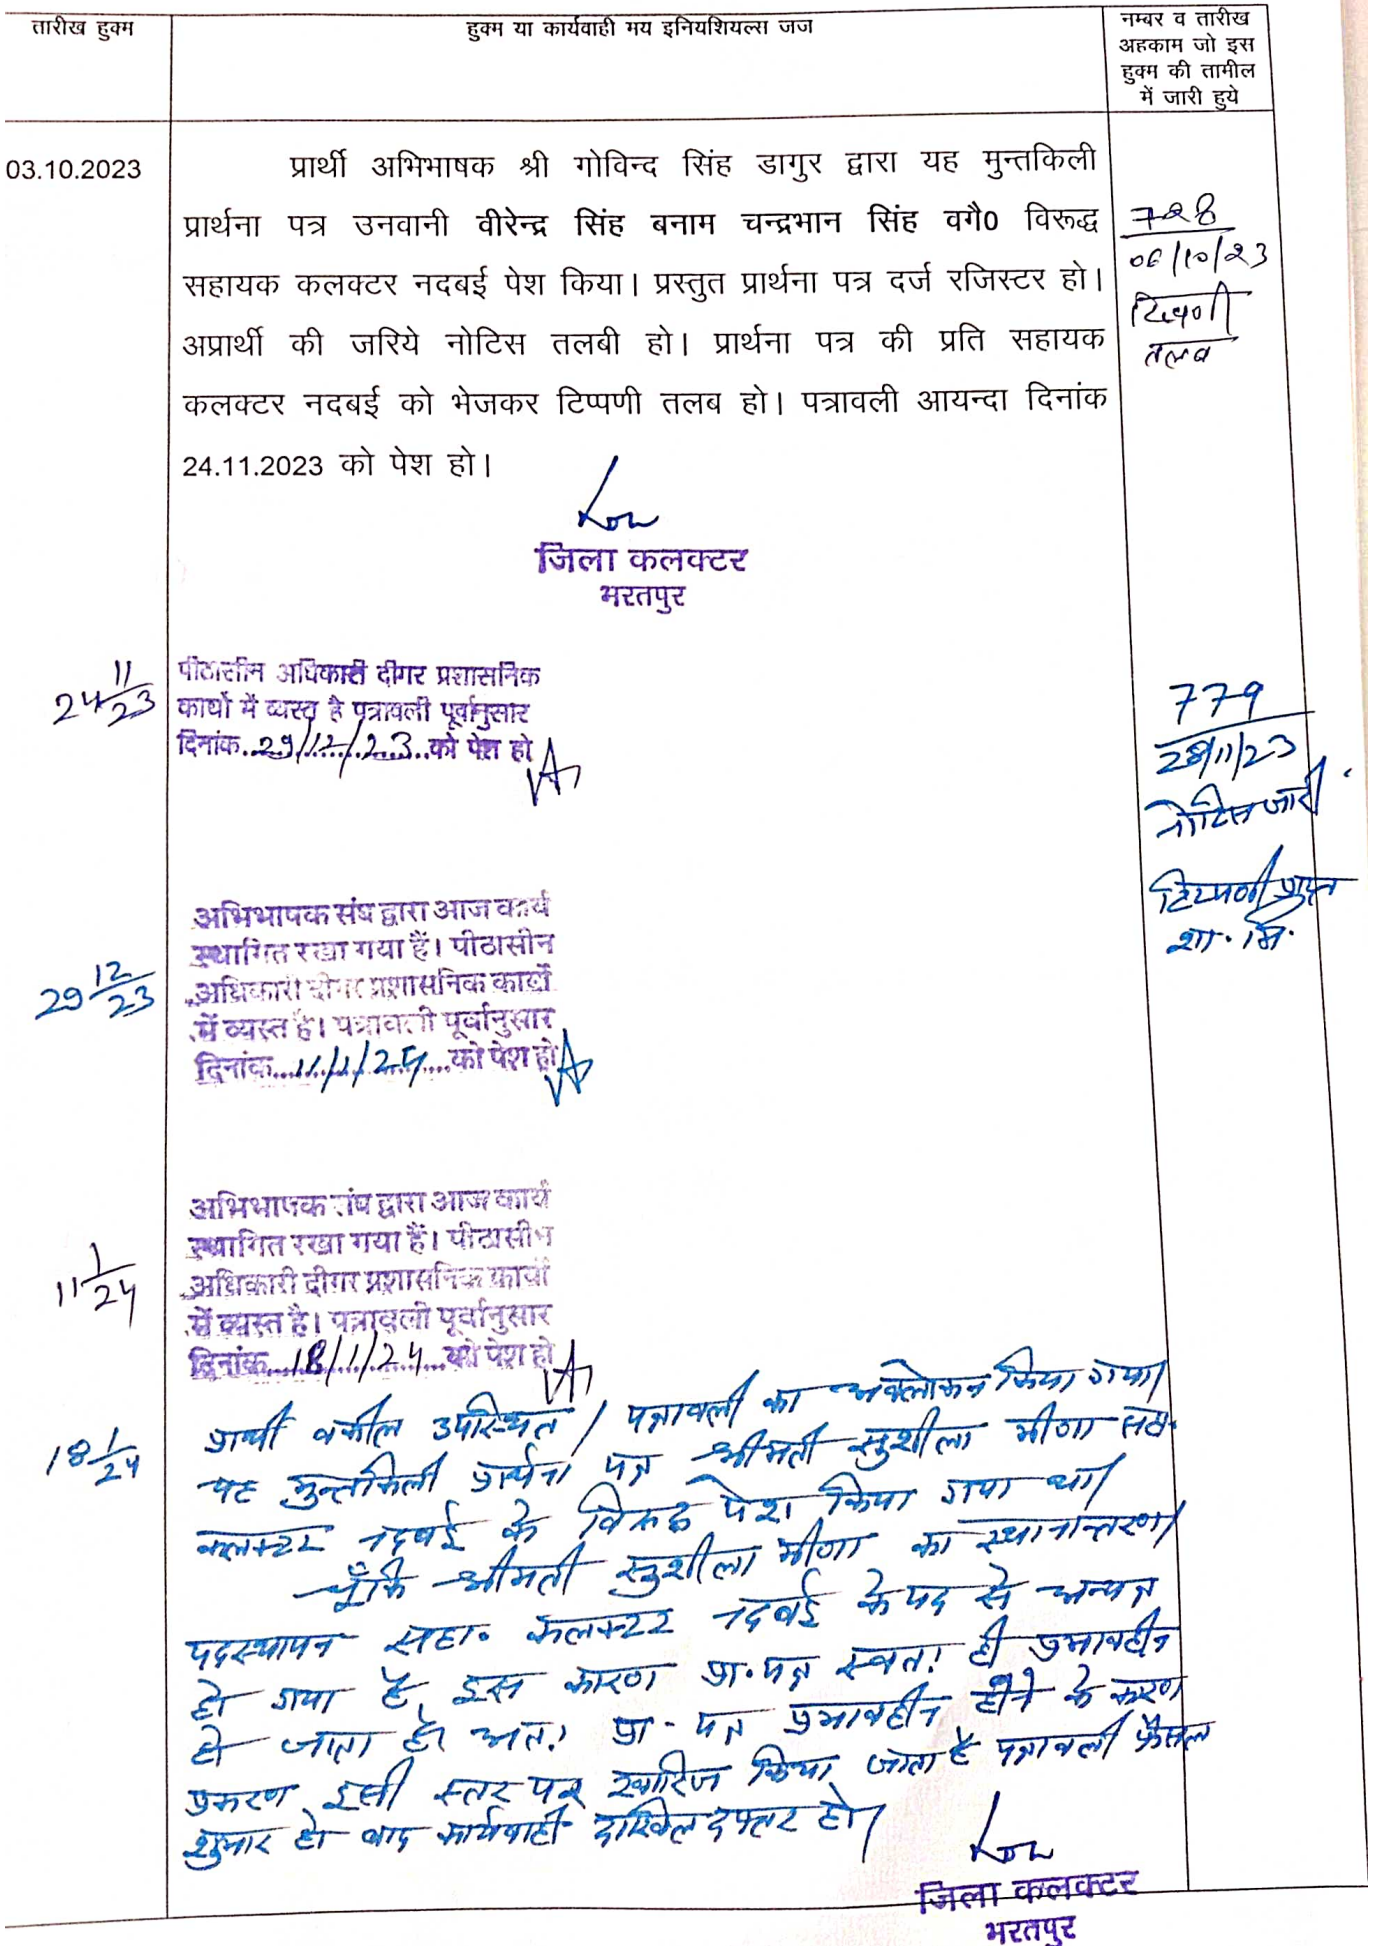 तारीख हुक्म
हुक्म या कार्यवाही मय इनियशियल्स जज
नम्बर व तारीख
अहकाम जो इस
हुक्म की तामील
में जारी हुये
03.10.2023
प्रार्थी अभिभाषक श्री गोविन्द सिंह डागुर द्वारा यह मुन्तकिली
प्रार्थना पत्र उनवानी वीरेन्द्र सिंह बनाम चन्द्रभान सिंह वगै0 विरूद्ध
सहायक कलक्टर नदबई पेश किया। प्रस्तुत प्रार्थना पत्र दर्ज रजिस्टर हो।
अप्रार्थी की जरिये नोटिस तलबी हो। प्रार्थना पत्र की प्रति सहायक
कलक्टर नदबई को भेजकर टिप्पणी तलब हो। पत्रावली आयन्दा दिनांक
24.11.2023 को पेश हो।
728
06/10/23
टिप्पणी
तलब
जिला कलक्टर
भरतपुर
24 11/23
पीठासीन अधिकारी दीगर प्रशासनिक
कार्यों में व्यस्त है पत्रावली पूर्वानुसार
दिनांक..29/12/23..को पेश हो
779
28/11/23
नोटिस जारी
टिप्पणी प्राप्त
शा. मि.
29 12/23
अभिभाषक संघ द्वारा आज कार्य
स्थागित रखा गया हैं। पीठासीन
अधिकारी दीगर प्रशासनिक कार्यो
में व्यस्त है। पत्रावली पूर्वानुसार
दिनांक....11/1/24....को पेश हो
11 1/24
अभिभाषक संघ द्वारा आज कार्य
स्थागित रखा गया हैं। पीठासीन
अधिकारी दीगर प्रशासनिक कार्यो
में व्यस्त है। पत्रावली पूर्वानुसार
दिनांक....18/1/24....को पेश हो
18 1/24
प्रार्थी वकील उपस्थित। पत्रावली का अवलोकन किया गया।
यह मुन्तकिली प्रार्थना पत्र श्रीमती सुशीला मीणा सहा.
कलक्टर नदबई के विरूद्ध पेश किया गया था।
चूँकि श्रीमती सुशीला मीणा का स्थानान्तरण/
पदस्थापन सहा. कलक्टर नदबई के पद से अन्यत्र
हो गया है, इस कारण प्रा.पत्र स्वत: ही प्रभावहीन
हो जाता है। अत: प्रा-पत्र प्रभावहीन होने के कारण
प्रकरण इसी स्तर पर खारिज किया जाता है पत्रावली फैसल
शुमार हो बाद कार्यवाही दाखिल दफ्तर हो।
जिला कलक्टर
भरतपुर